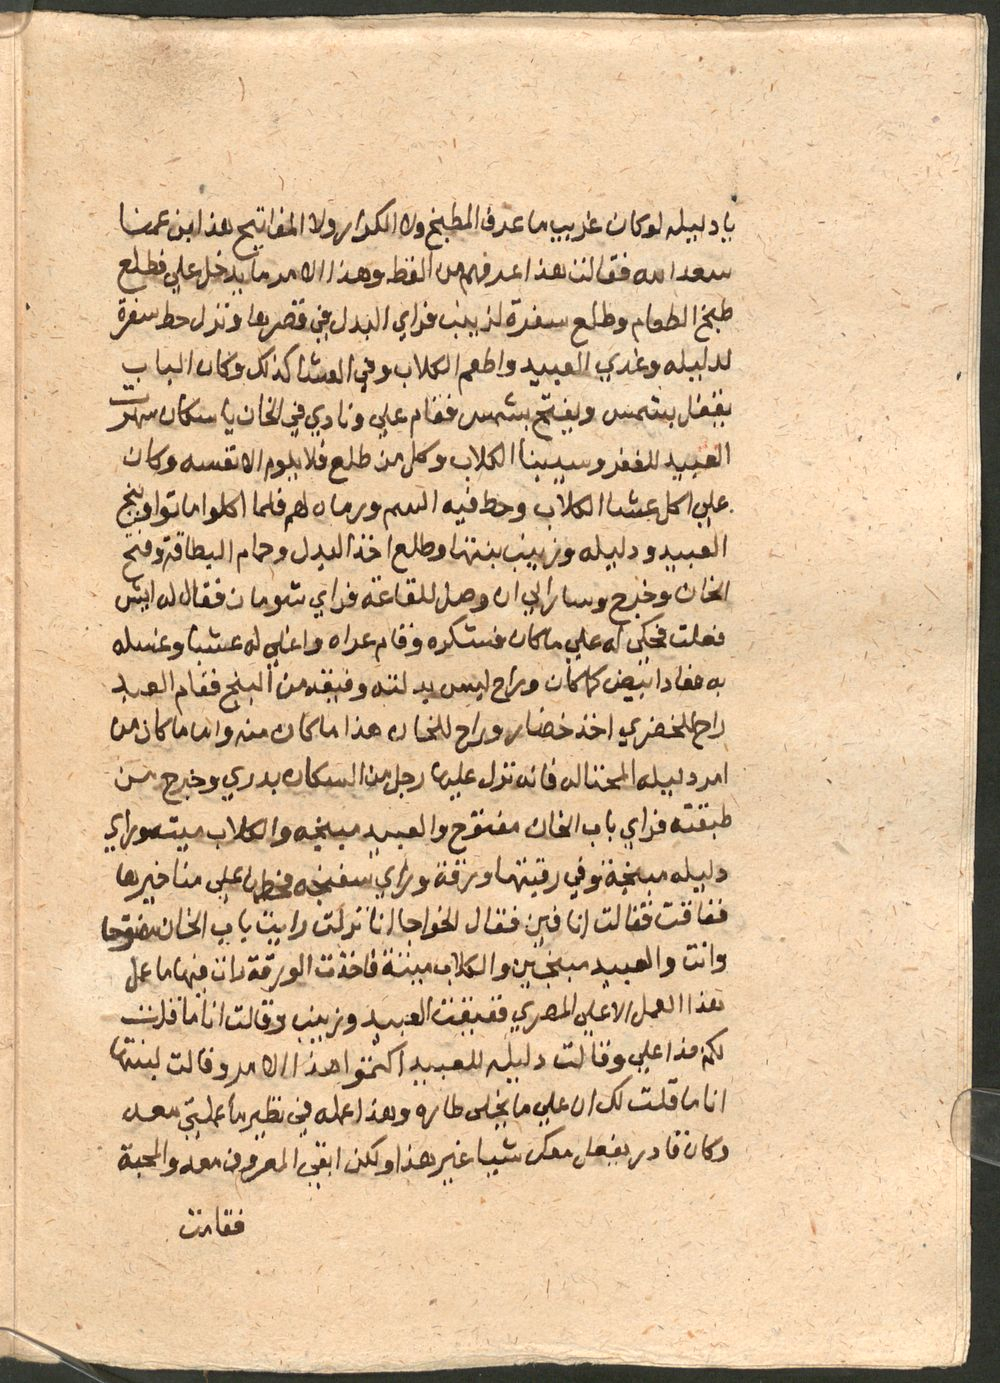 يا دليله لو كان غريب ما عرف المطبخ ولا الكرار ولا المفاتيح هذا ابن عمنا
سعد الله فقالت هذا عرفهم من القط وهذا الامر ما يدخل علي فطلع
طبخ الطعام وطلع سفرة لزينب فراي البدل في قصرها ونزل حط سفرة
لدليله وغدي العبيد واطعم الكلاب وفي العشا كذلك وكان الباب
يقفل بشمس ويفتح بشمس فقام علي ونادي في الخان يا سكان سهرت
العبيد للغفر وسيبنا الكلاب وكل من طلع فلا يلوم الا نفسه وكان
علي اكل عشا الكلاب وحط فيه السم ورماه لهم فلما اكلوا ماتوا وبنج
العبيد ودليله وزينب بنتها وطلع اخذ البدل وحمام البطاقة وفتح
الخان وخرج وسار الي ان وصل للقاعة فراي شومان فقال له ايش
فعلت فحكي له علي ما كان فشكره وقام عراه واغلي له عشبا وغسله
به فعاد ابيض كما كان وراح لبس بدلته وفيقه من البنج فقام العبد
راح للخضري اخذ خضار وراح للخان هذا ما كان منه واما ما كان من
امر دليله المحتاله فانه نزل عليها رجل من السكان بدري وخرج من
طبقته فراي باب الخان مفتوح والعبيد مبنجه والكلاب ميته وراي
دليله مبنجة وفي رقبتها ورقة وراي سفنجه فحطها علي مناخيرها
ففاقت فقالت انا فين فقال الخواجا انا نزلت رايت باب الخان مفتوحا
وانت والعبيد مبنجين والكلاب ميتة فاخذت الورقة رات فيها ما عمل
هذا العمل الا علي المصري ففيقت العبيد وزينب وقالت انا ما قلت
لكم هذا علي وقالت دليله للعبيد اكتموا هذا الامر وقالت لبنتها
انا ما قلت لك ان علي ما يخلي طاره وهذا عمله في نظير ما عملتي معه
وكان قادر يفعل معكي شيا غير هذا ولكن ابقي المعروف معه والمحبة
فقامت